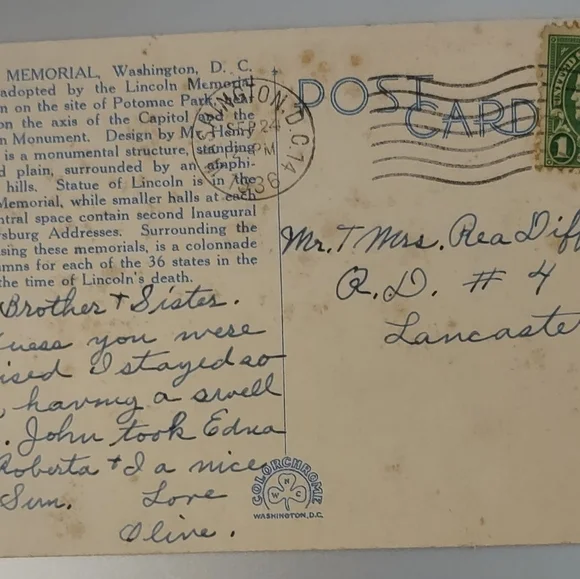 MEMORIAL, Washington, D. C.
adopted by the Lincoln Memorial
n on the site of Potomac Park, and
on the axis of the Capitol and the
n Monument. Design by Mr. Henry
is a monumental structure, standing
d plain, surrounded by an amphi-
hills. Statue of Lincoln is in the
Memorial, while smaller halls at each
ntral space contain second Inaugural
sburg Addresses. Surrounding the
sing these memorials, is a colonnade
umns for each of the 36 states in the
the time of Lincoln's death.
Brother + Sister.
uess you were
ised I stayed so
, having a swell
. John took Edna
Roberta + I a nice
Sun. Love
Olive.
POST
CARD
WASHINGTON, D.C. 14
SEP 24
PM
1936
UNITED
1
Mr. + Mrs. Rea Diff
R.D. # 4
Lancaste
COLORCHROME
N
W C
WASHINGTON, D.C.